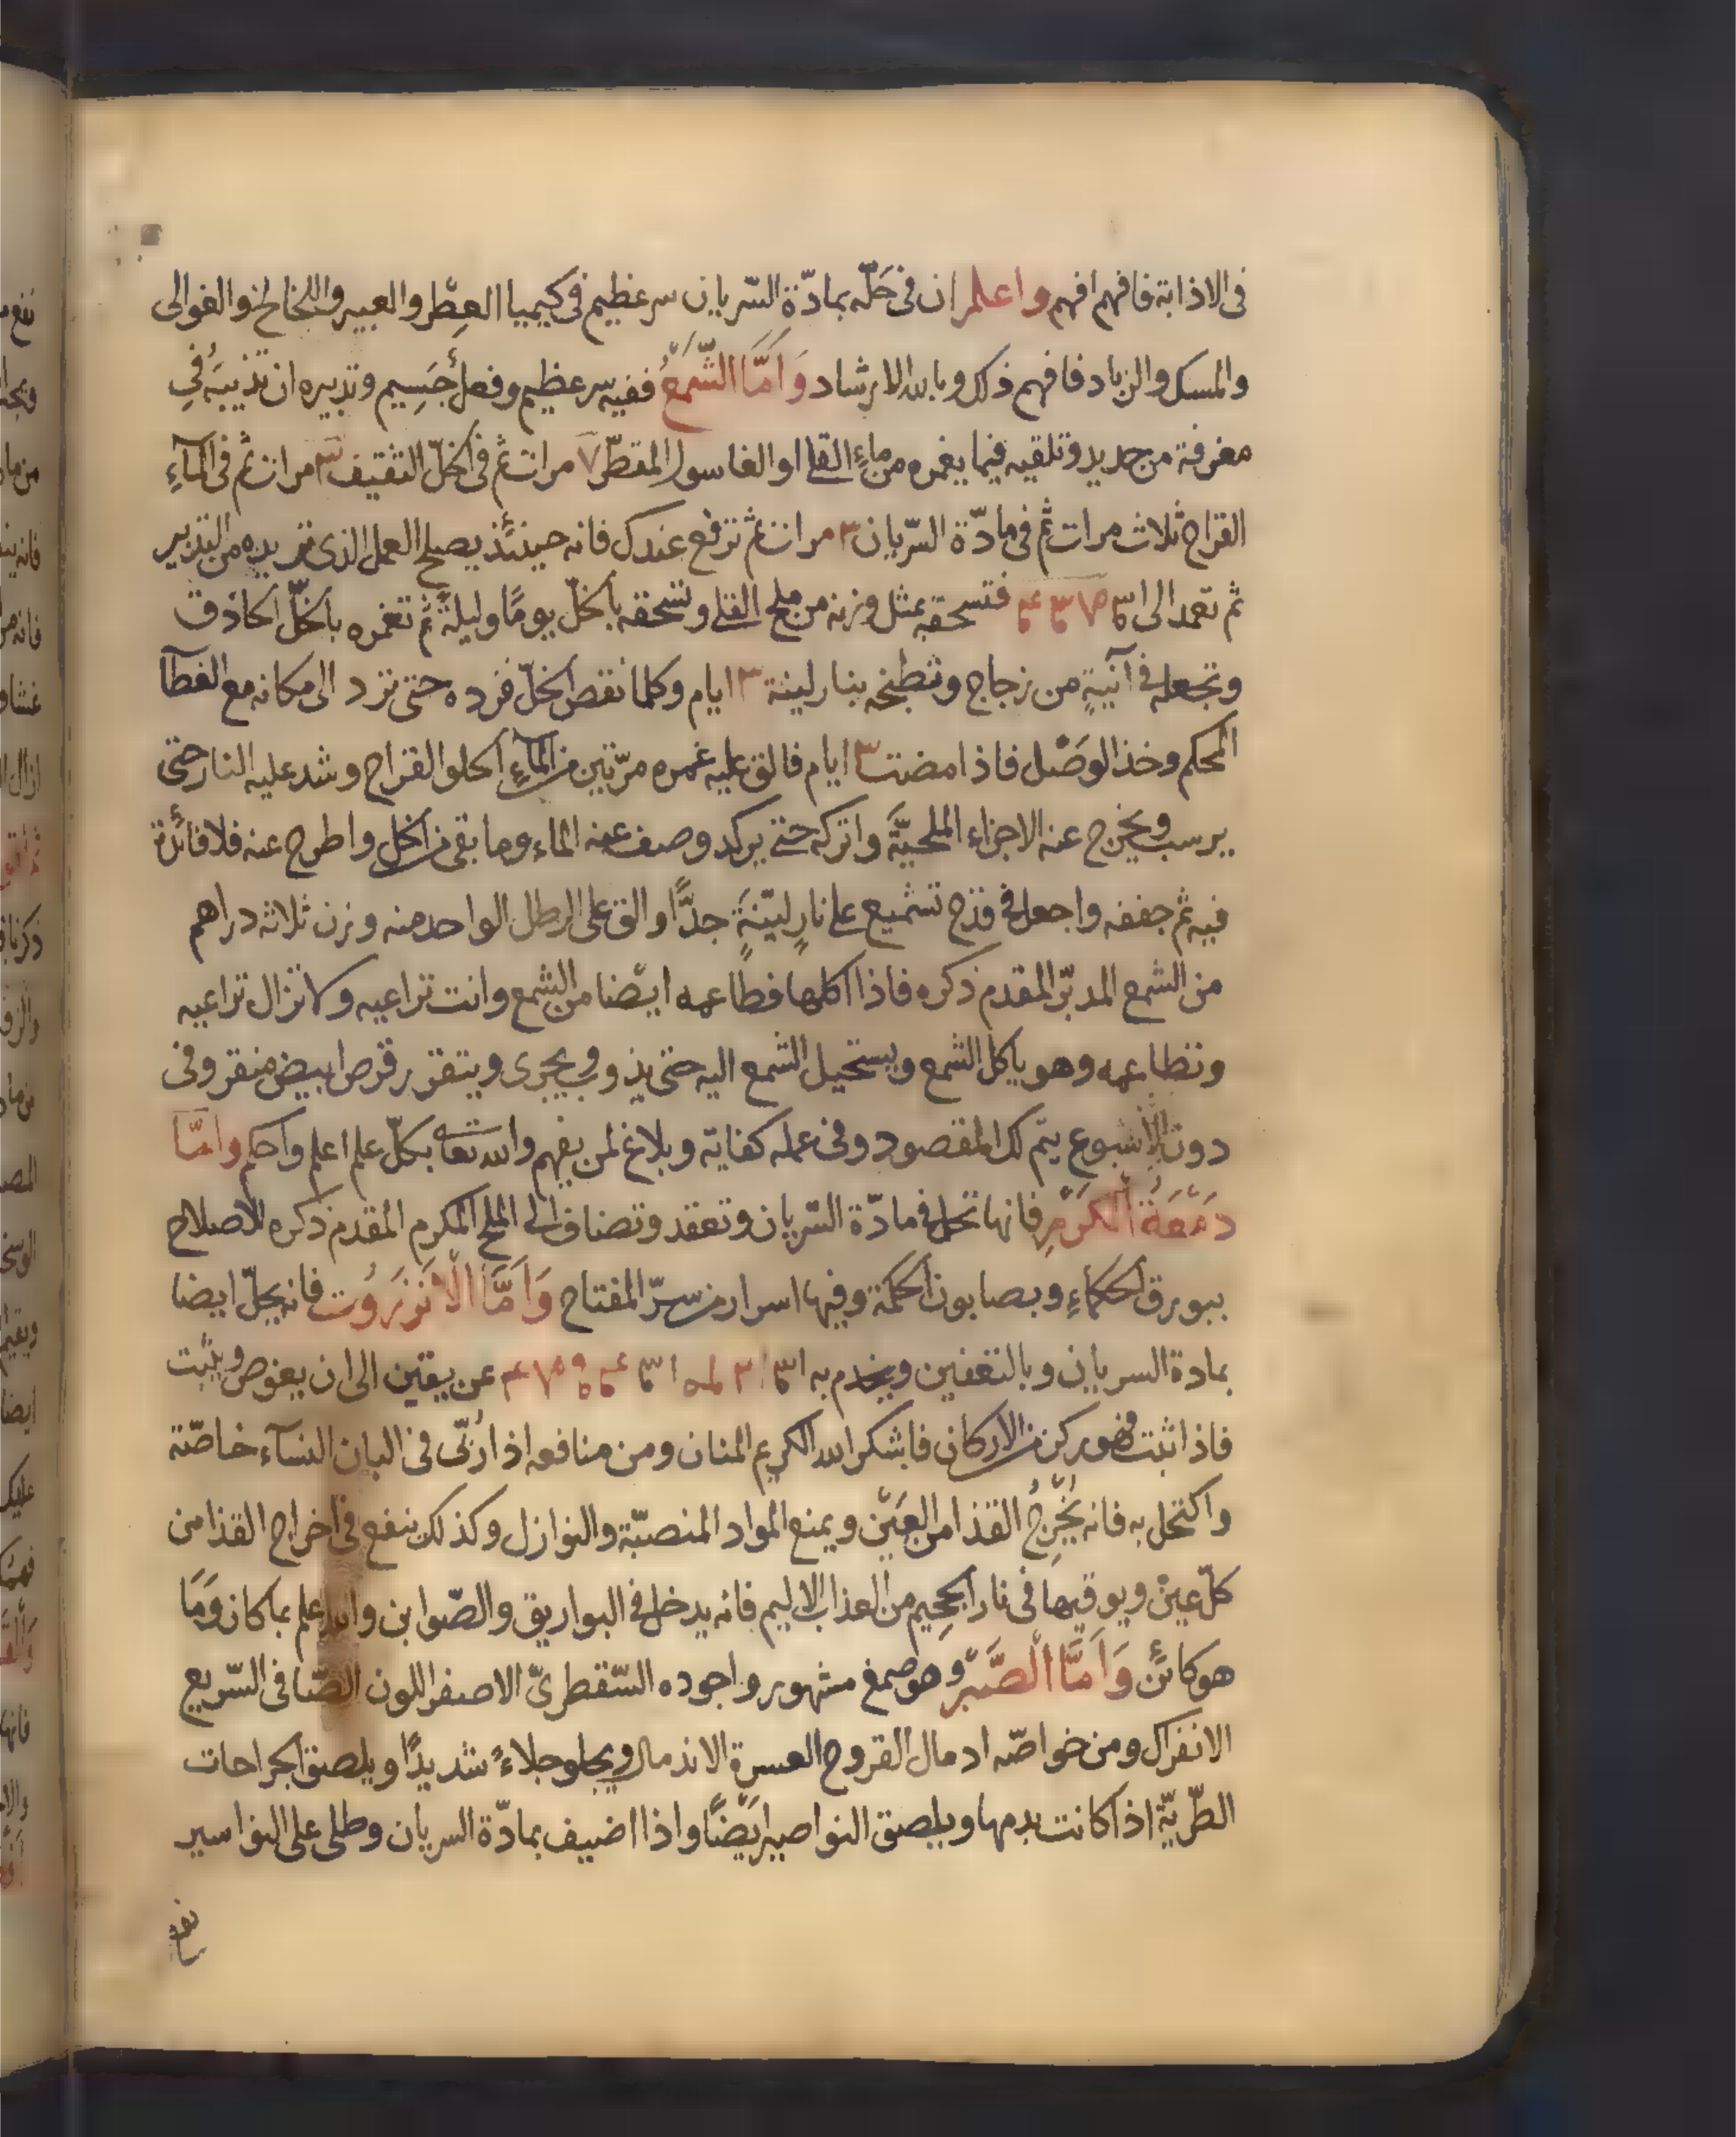 فى الاذابة فافهم افهم واعلم ان فى حَلّه بمادّةِ السّريان سر عظيم فى كيميا العِطْر والعبير واللخالخ والغوالى
والمسك والزباد فافهم ذلك وبالله الارشاد وَاَمَّا الشَّمْعُ ففيه سر عظيم وفعلٌ جَسِيم وتدبيره ان تذيبَهُ فى
مغرفة من حديد وتلقيه فيما يغمره من ماءِ القلى او الغاسول المقطّر ٧ مرات ثم فى الخلّ الثقيف ٣ مرات ثم فى المآءِ
القراح ثلاث مرات ثم فى مادّة السّريان ٣ مرات ثم ترفع عندك فانه حينئذ يصلح العمل الذى تريده من التدبير
ثم تعمد الى فتسحقه بمثل وزنه من ملح القلى وتسحقه بالخلّ يومًا وليلةً ثم تغمره بالخلّ الحاذق
وتجعله فى آنيةٍ من زجاج وتطبخه بنار لينة ٣ ايام وكلما نقص الخلّ فزده حتى ترد الى مكانه مع الغطآ
المحكم وخذ الوَصْل فاذا مضت ٣ ايام فالق عليه غمره مرّتين من المآءِ الحلو القراح وشد عليه النار حتى
يرسب ويخرج عنه الاجزاء الملحيَّة واتركه حتى يركد وصف عنه الماء وما بقى من الخل واطرح عنه فلا فائدة
فيه ثم جففه واجعله فى قدح تشميع على نارٍ ليّنةٍ جدًّا والق على الرطل الواحد منه وزن ثلاثه دراهم
من الشمع المدبّر المقدم ذكره فاذا اكلها فطاعمه ايضا من الشمع وانت تراعيه ولا تزال تراعيه
وتطاعمه وهو ياكل الشمع ويستحيل الشمع اليه حتى يذوب ويجرى ويتقرر قرص ابيض منقر وفى
دون الاسبوع يتم لك المقصود وفى عمله كفاية وبلاغ لمن يفهم والله تعا بكلّ علم اعلم واحكم وامّا
دَمْعَةُ الكَرْمِ فانها تحل فى مادّة السّريان وتعقد وتضاف الى الملح المكرم المقدم ذكره للاصلاح
ببورق الحكماءِ وبصابون الحكمة وفيها اسرار من سرّ المفتاح وَاَمَّا الْاَنْزَرُوت فانه يحلّ ايضا
بمادة السريان وبالتعفين ويخدم به عن يقين الى ان يغوص ويثبت
فاذا ثبت فهو ركن من الاركان فاشكر الله الكريم المنان ومن منافعه اذا رُبّى فى البان النسآء خاصّة
واكتحل به فانه يُخْرِجُ القذا من العَيْن ويمنع المواد المنصبّة والنوازل وكذلك ينفع فى اخراج القذا من
كلّ عين ويوقيها فى نار الجحيم من العذاب الاليم فانه يدخل فى البواريق والصّوابن والله اعلم بما كان وَمَا
هو كائنٌ وَاَمَّا الْصَّبْر وهو صمغ مشهور واجوده السّقطرىّ الاصفر اللون الصّافى السّريع
الانفراك ومن خواصّه ادمال القروح العسرة الاندمال ويجلو جلاءً شديدًا ويلصق الجراحات
الطّريّة اذا كانت بدمها ويلصق النواصير ايضًا واذا اضيف بمادّة السريان وطلى على النواسير